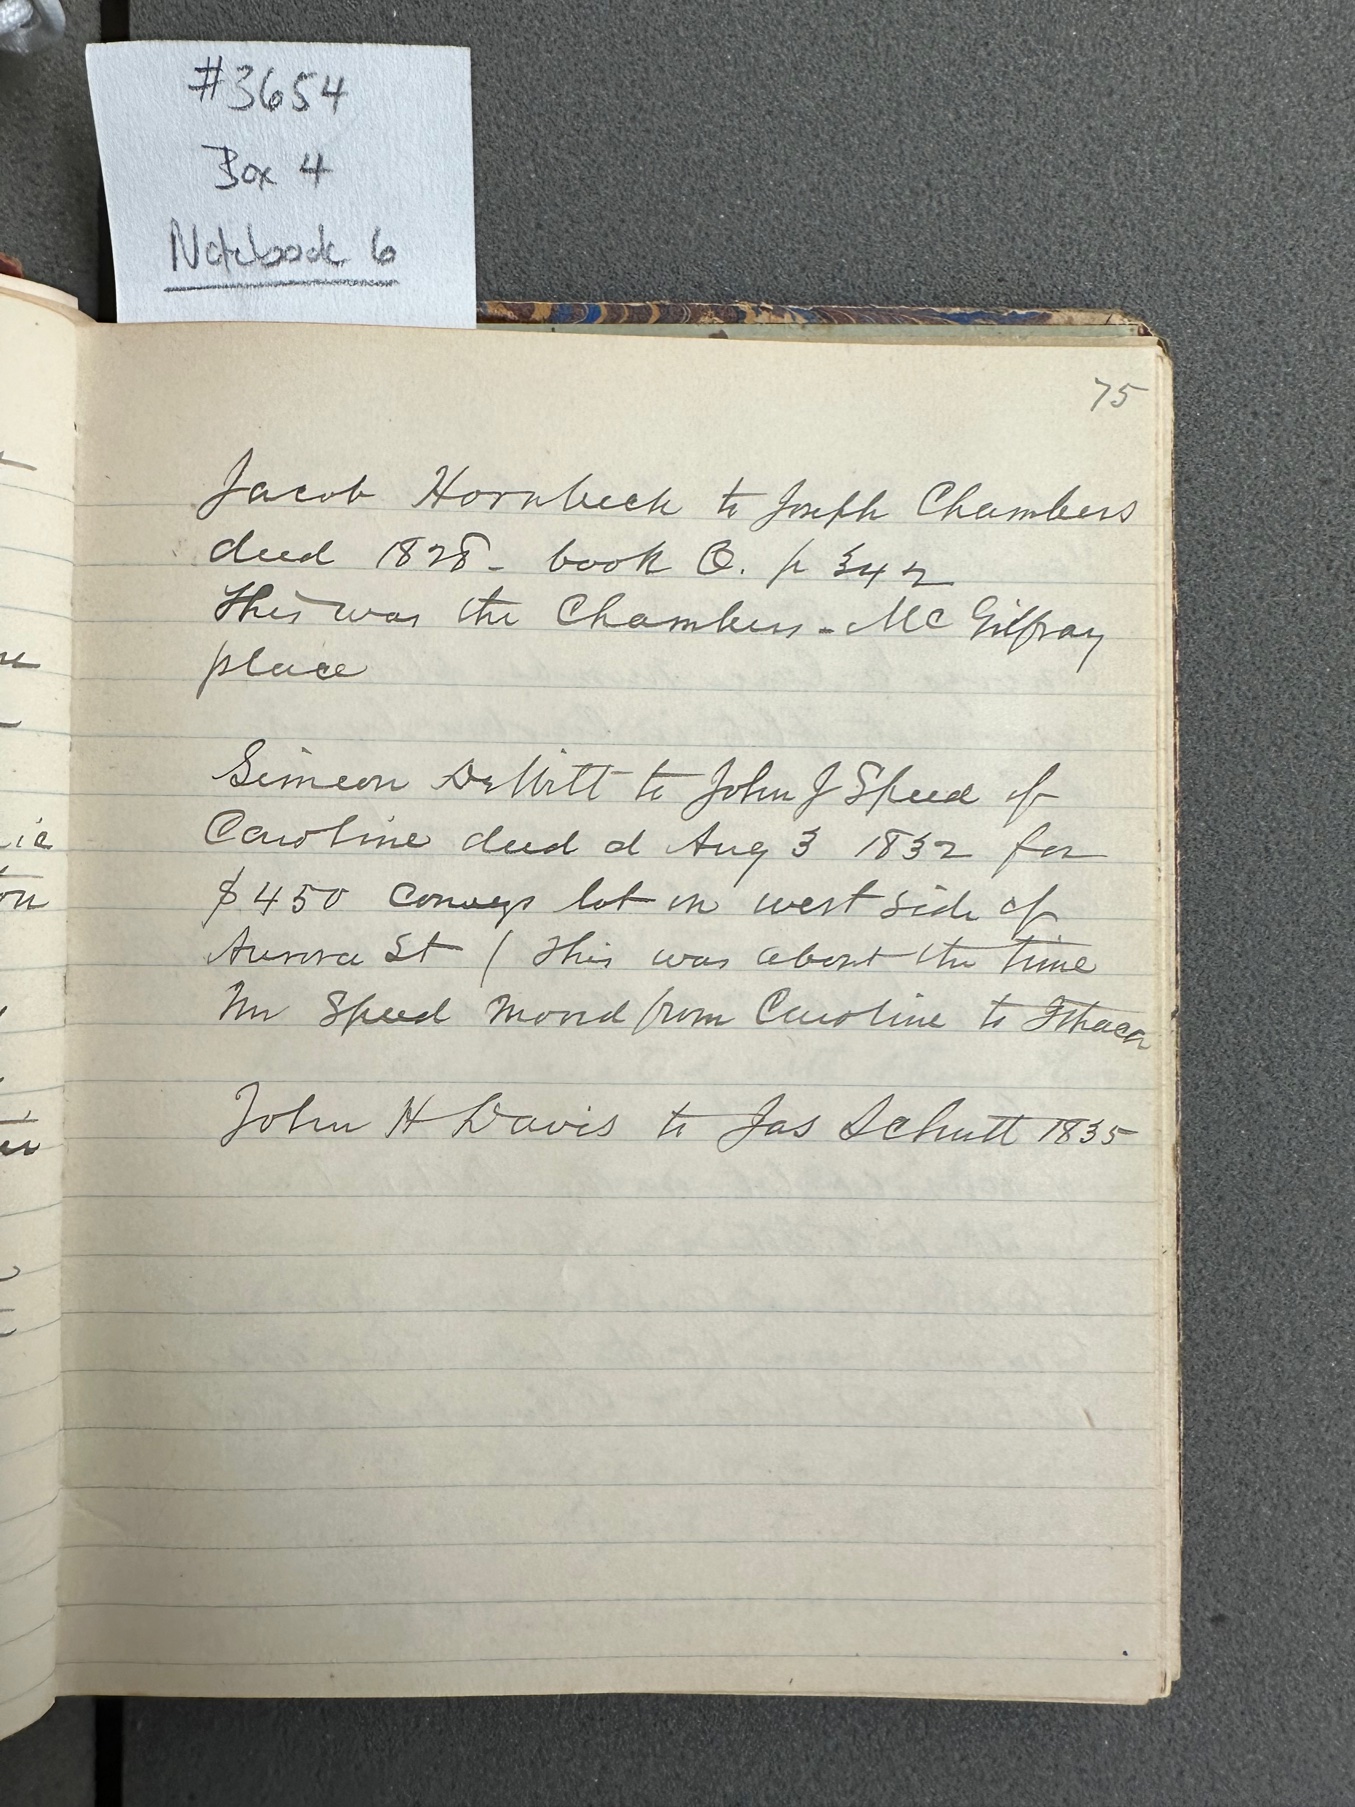 #3654
Box 4
Notebook 6
75
Jacob Hornbeck to Joseph Chambers
deed 1828 - book O. p 342
This was the Chambers - McGilfray
place
Simeon DeWitt to John J Speed of
Caroline deed d Aug 3 1832 for
$450 conveys lot on west side of
Aurora St ( This was about the time
Mr Speed moved from Caroline to Ithaca
John H Davis to Jas Schutt 1835